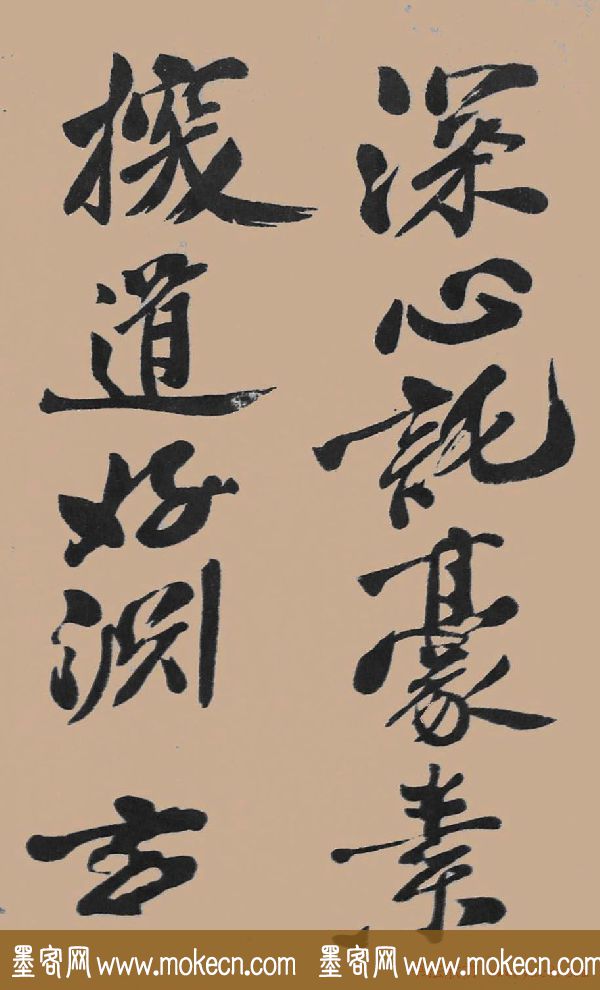 深心託豪素
探道好淵玄
墨客网 www.mokecn.com 墨客网 www.mokecn.com